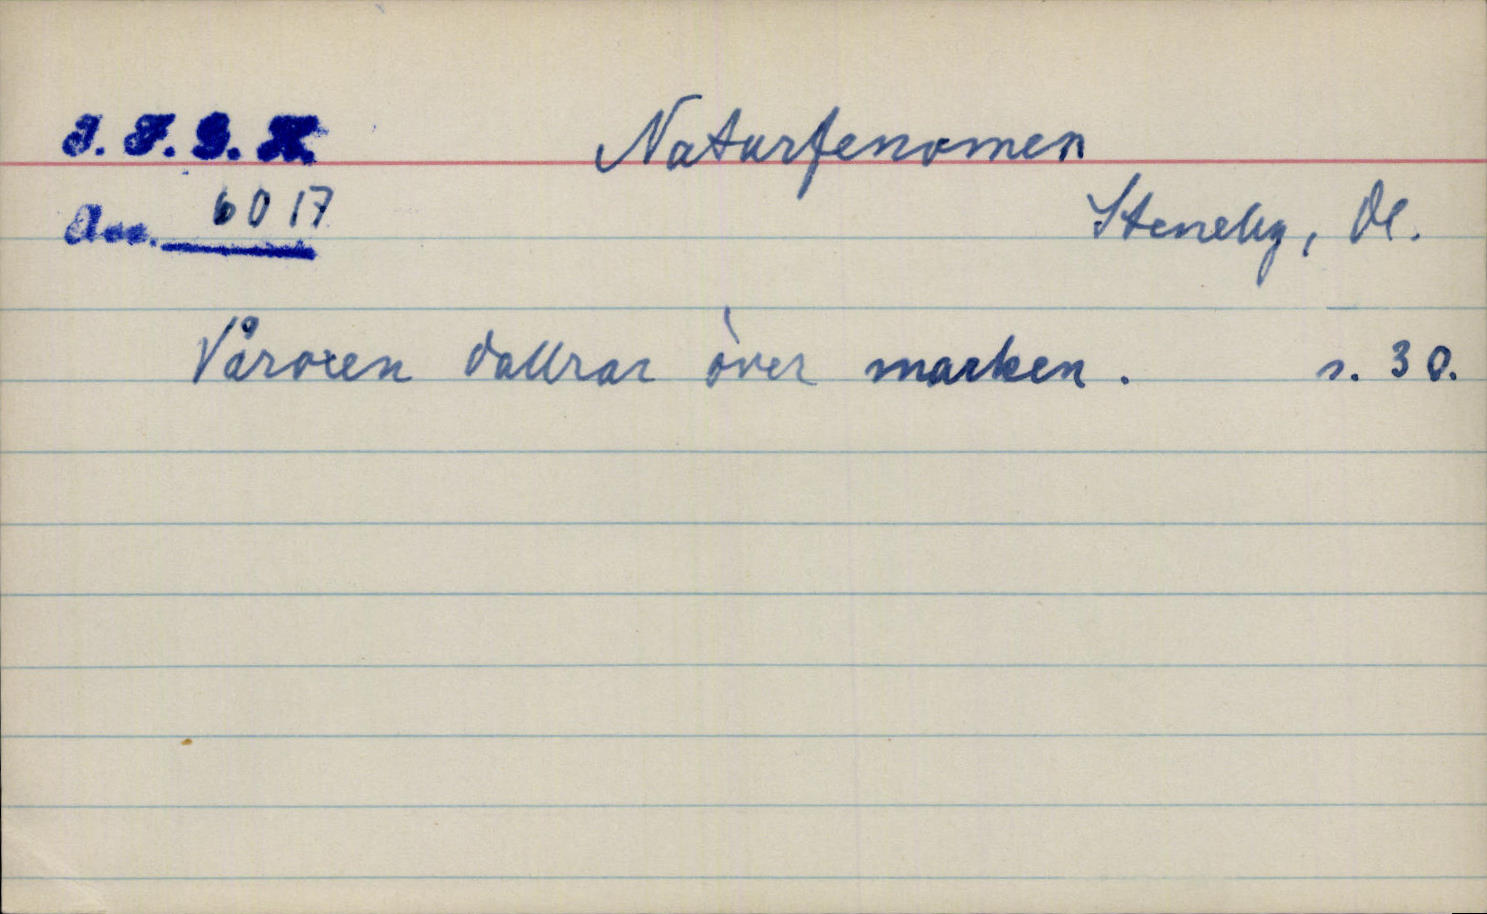 I. F. G. H.
Naturfenomen
Acc. 6017
Steneby, Dl.
Våroxen dallrar över marken. s. 30.